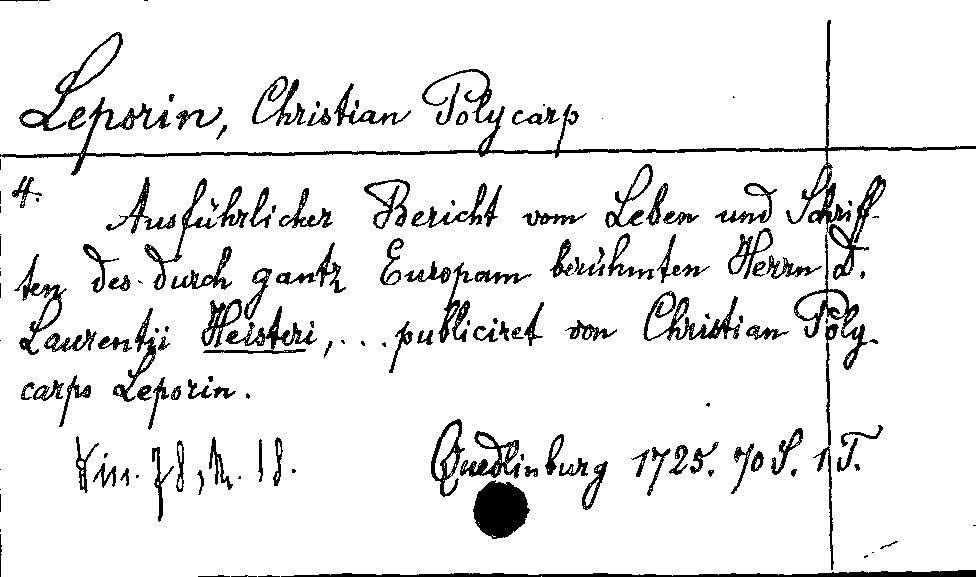 Leporin, Christian Polycarp
4.
Ausführlicher Bericht vom Leben und Schrif-
ten des durch gantz Europam berühmten Herrn D.
Laurentii Heisteri,... publiciret von Christian Poly-
carpo Leporin.
78, 18.
Quedlinburg 1725. 70 S. 1 T.